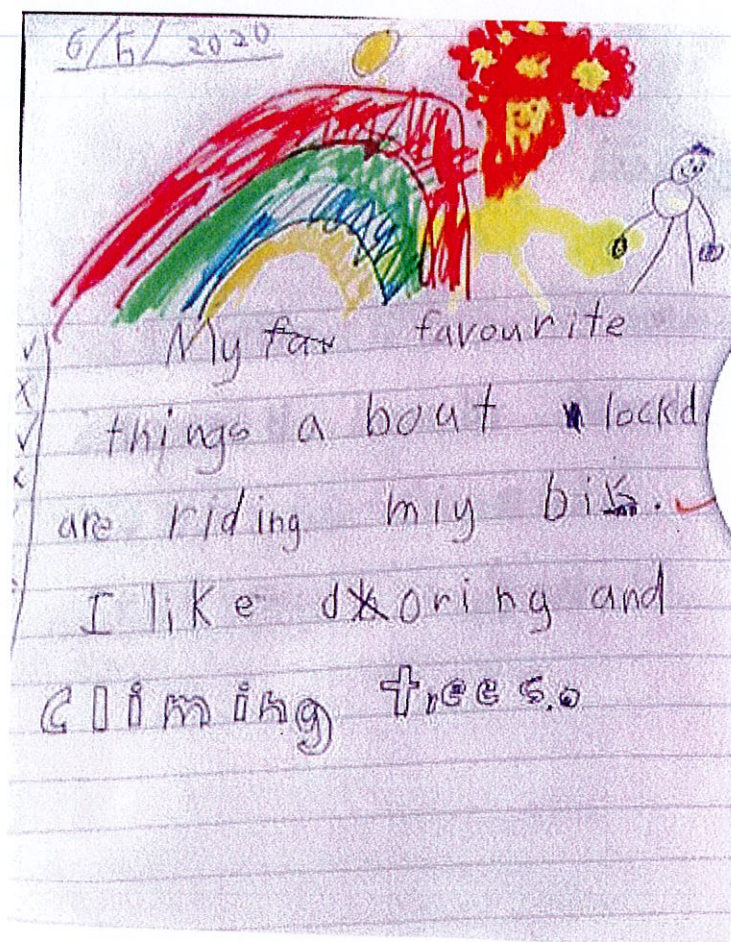 6/5/2020
My fav favourite
things a bout lockd
are riding miy bik.
I like doring and
climing trees.